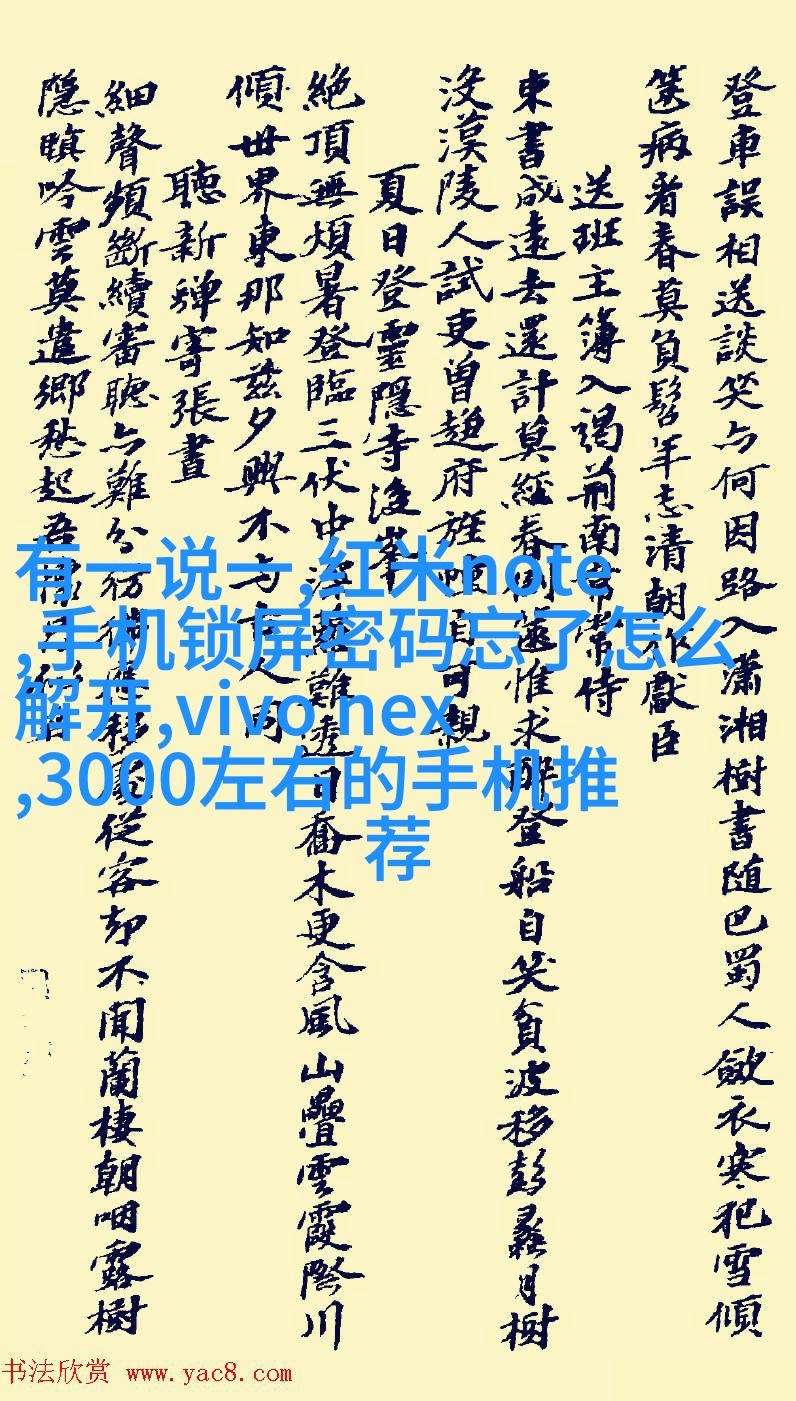 登車誤相送談笑与何因路入瀟湘樹書随巴蜀人斂衣寒犯雪傾
篋病看春莫負髫年志清朝作獻臣
送班主簿入謁荆南韋常侍
束書成遠去還計莫經春倒篋惟求醉登船自笑貧波移彭蠡月樹
没漢陵人試吏曾趨府旌幢自可親
夏日登靈隱寺後峯
絶頂無煩暑登臨三伏中深蘿難透日喬木更含風山疊雲霞際川
傾世界東那知兹夕興不与古人同
聽新蟬寄張晝
細聲頻斷續審聽亦難分彷彿應移處從容却不聞蘭棲朝咽露樹
隱暝吟雲莫遣鄉愁起吾
有一说一,红米note
,手机锁屏密码忘了怎么
解开,vivo nex
,3000左右的手机推
荐
书法欣赏 www.yac8.com